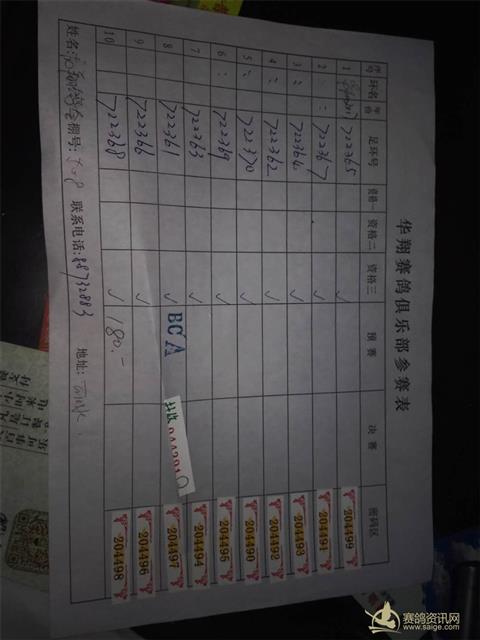 华翔赛鸽俱乐部参赛表
序号 环名 年份 足环号 资格一 资格二 资格三 预赛 决赛 密码区
1 2017 722365 ✓ 204499
2 : : 722367 ✓ 204491
3 : : 722364 ✓ 204493
4 : : 722362 ✓ 204492
5 : : 722370 ✓ 204490
6 : : 722369 ✓ 204495
7 722363 ✓ 204494
8 722361 ✓ BCA 204497
9 722366 ✓ 204496
10 722368 ✓ 180.- 204498
姓名: 棚号: 联系电话:88732883 地址:
赛鸽资讯网
www.saige.com